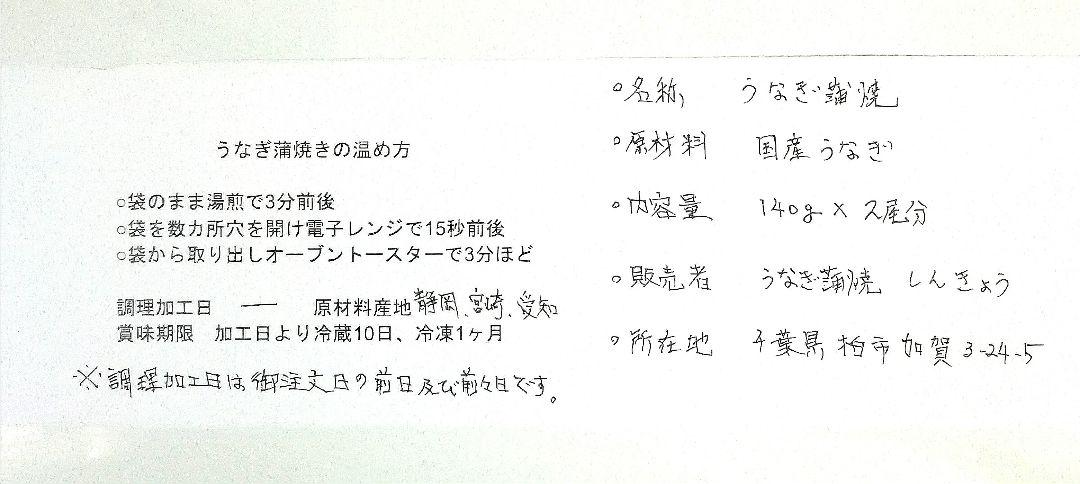 うなぎ蒲焼きの温め方
○袋のまま湯煎で3分前後
○袋を数カ所穴を開け電子レンジで15秒前後
○袋から取り出しオーブントースターで3分ほど
調理加工日 ― 原材料産地 静岡、宮崎、愛知
賞味期限 加工日より冷蔵10日、冷凍1ヶ月
※調理加工日は御注文日の前日及び前々日です。
○名称、 うなぎ蒲焼
○原材料 国産うなぎ
○内容量 140g×2尾分
○販売者 うなぎ蒲焼 しんきょう
○所在地 千葉県柏市加賀3-24-5